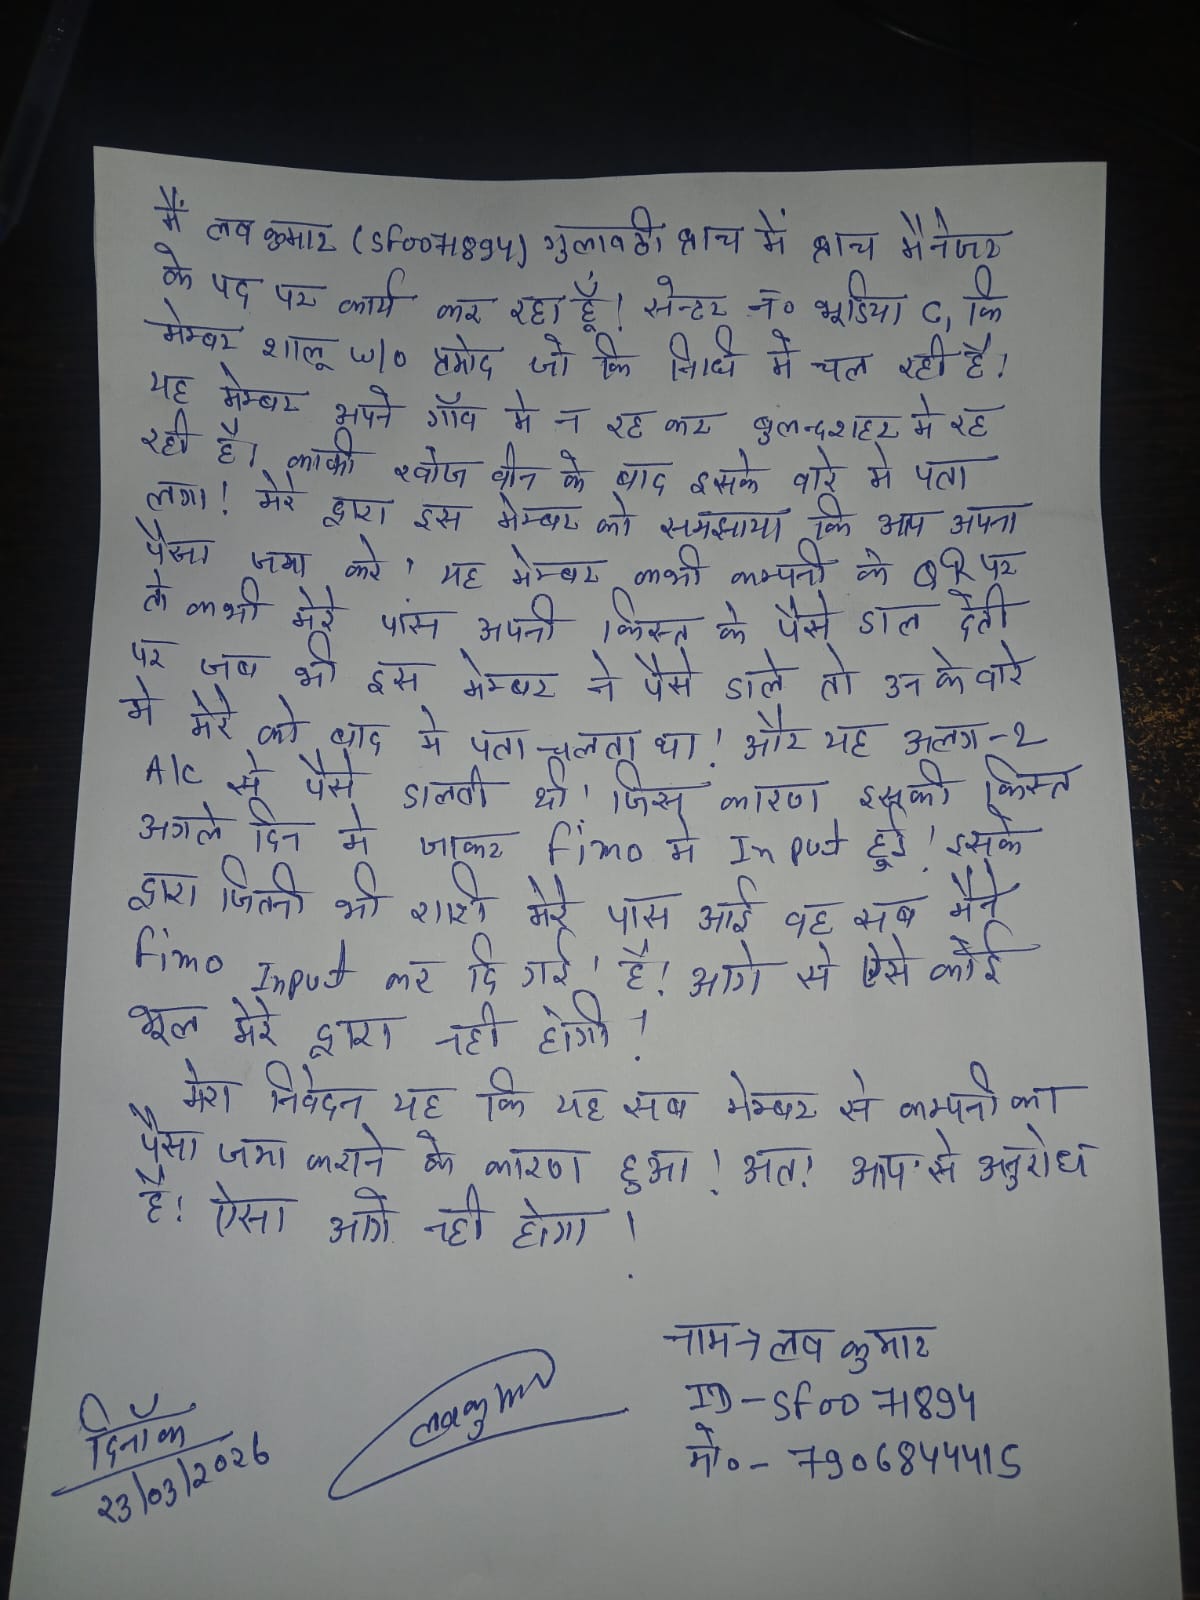 मैं लव कुमार (SF0071894) गुलावठी ब्रांच में ब्रांच मैनेजर
के पद पर कार्य कर रहा हूँ! सेन्टर नं० भूडिया C, कि
मेम्बर शालू W/O प्रमोद जो कि निधि मे चल रही है!
यह मेम्बर अपने गॉव मे न रह कर बुलन्दशहर मे रह
रही है। काफी खोज वीन के बाद इसके वारे मे पता
लगा! मेरे द्वारा इस मेम्बर को समझाया कि आप अपना
पैसा जमा करे! यह मेम्बर कभी कम्पनी के QR पर
तो कभी मेरे पास अपनी किस्त के पैसे डाल देती
पर जब भी इस मेम्बर ने पैसे डाले तो उनके वारे
मे मेरे को बाद मे पता चलता था! और यह अलग-2
A/C से पैसे डालती थी! जिस कारण इसकी किस्त
अगले दिन मे जाकर fimo मे Input हुई! इसके
द्वारा जितनी भी राशी मेरे पास आई वह सब मैने
fimo Input कर दि गई! है! आगे से ऐसे कोई
भूल मेरे द्वारा नही होगी!
मेरा निवेदन यह कि यह सब मेम्बर से कम्पनी का
पैसा जमा कराने के कारण हुआ! अत! आप से अनुरोध
है! ऐसा आगे नही होगा!
नाम→ लव कुमार
ID-SF0071894
मो०- 7906844415
लवकुमार
दिनॉक
23/03/2026